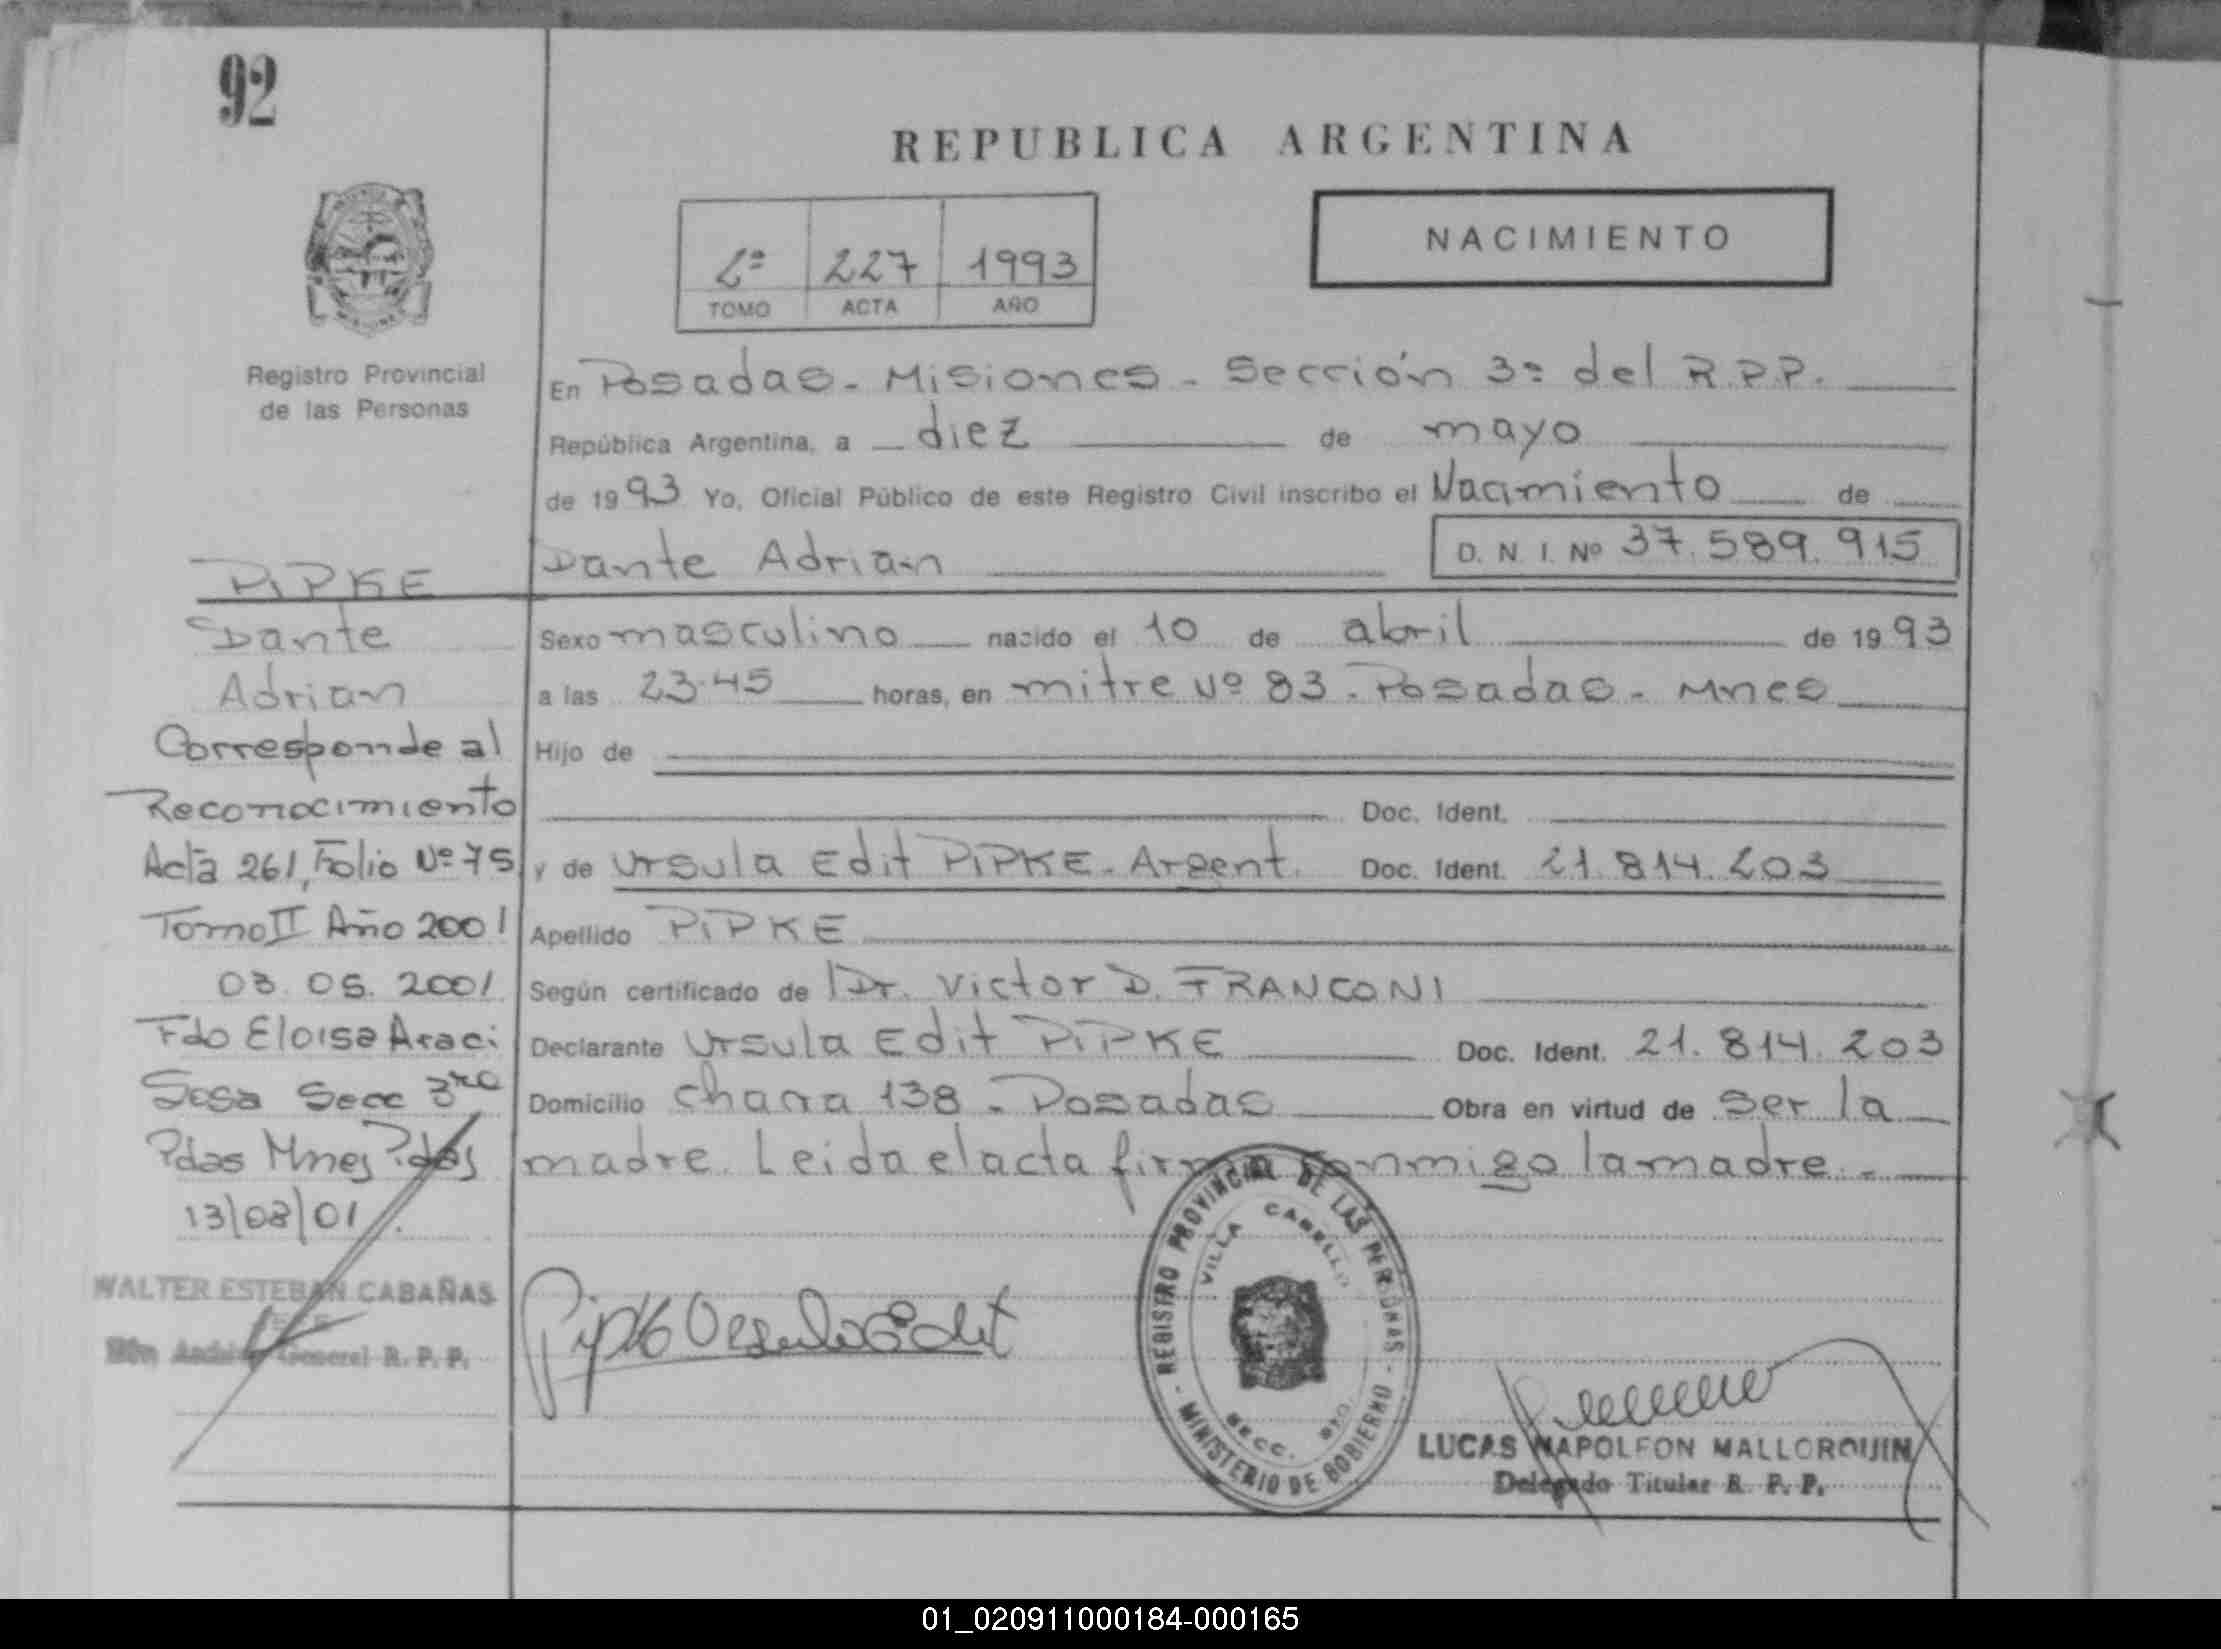 92
REPUBLICA ARGENTINA
2º 227 1993
TOMO ACTA AÑO
NACIMIENTO
Registro Provincial
de las Personas
En Posadas - Misiones - Sección 3ª del R.P.P.
República Argentina, a diez de mayo
de 1993 Yo, Oficial Público de este Registro Civil inscribo el Nacimiento de
Dante Adrian D. N. I. Nº 37.589.915
Sexo masculino nacido el 10 de abril de 1993
a las 23.45 horas, en mitre Nº 83 - Posadas - Mnes
Hijo de
Doc. Ident.
y de Ursula Edit PiPKE - Argent. Doc. Ident. 21.814.203
Apellido PiPKE
Según certificado de Dr. Victor D. FRANCONI
Declarante Ursula Edit PiPKE Doc. Ident. 21.814.203
Domicilio chacra 138 - Posadas Obra en virtud de ser la
madre. Leida el acta firma conmigo la madre.-
PiPKE
Dante
Adrian
Corresponde al
Reconocimiento
Acta 261, Folio Nº 75
Tomo II Año 2001
03.05.2001
Fdo Eloisa Araci
Sosa Secc 3ra
Pdas Mnes Pdas
13/08/01
WALTER ESTEBAN CABAÑAS
General R. P. P.
Pipke Ursula Edit
REGISTRO PROVINCIAL DE LAS PERSONAS - MINISTERIO DE GOBIERNO -
VILLA CABELLO
SECC. 3RA.
LUCAS NAPOLEON MALLORQUIN
Delegado Titular R. P. P.
01_020911000184-000165